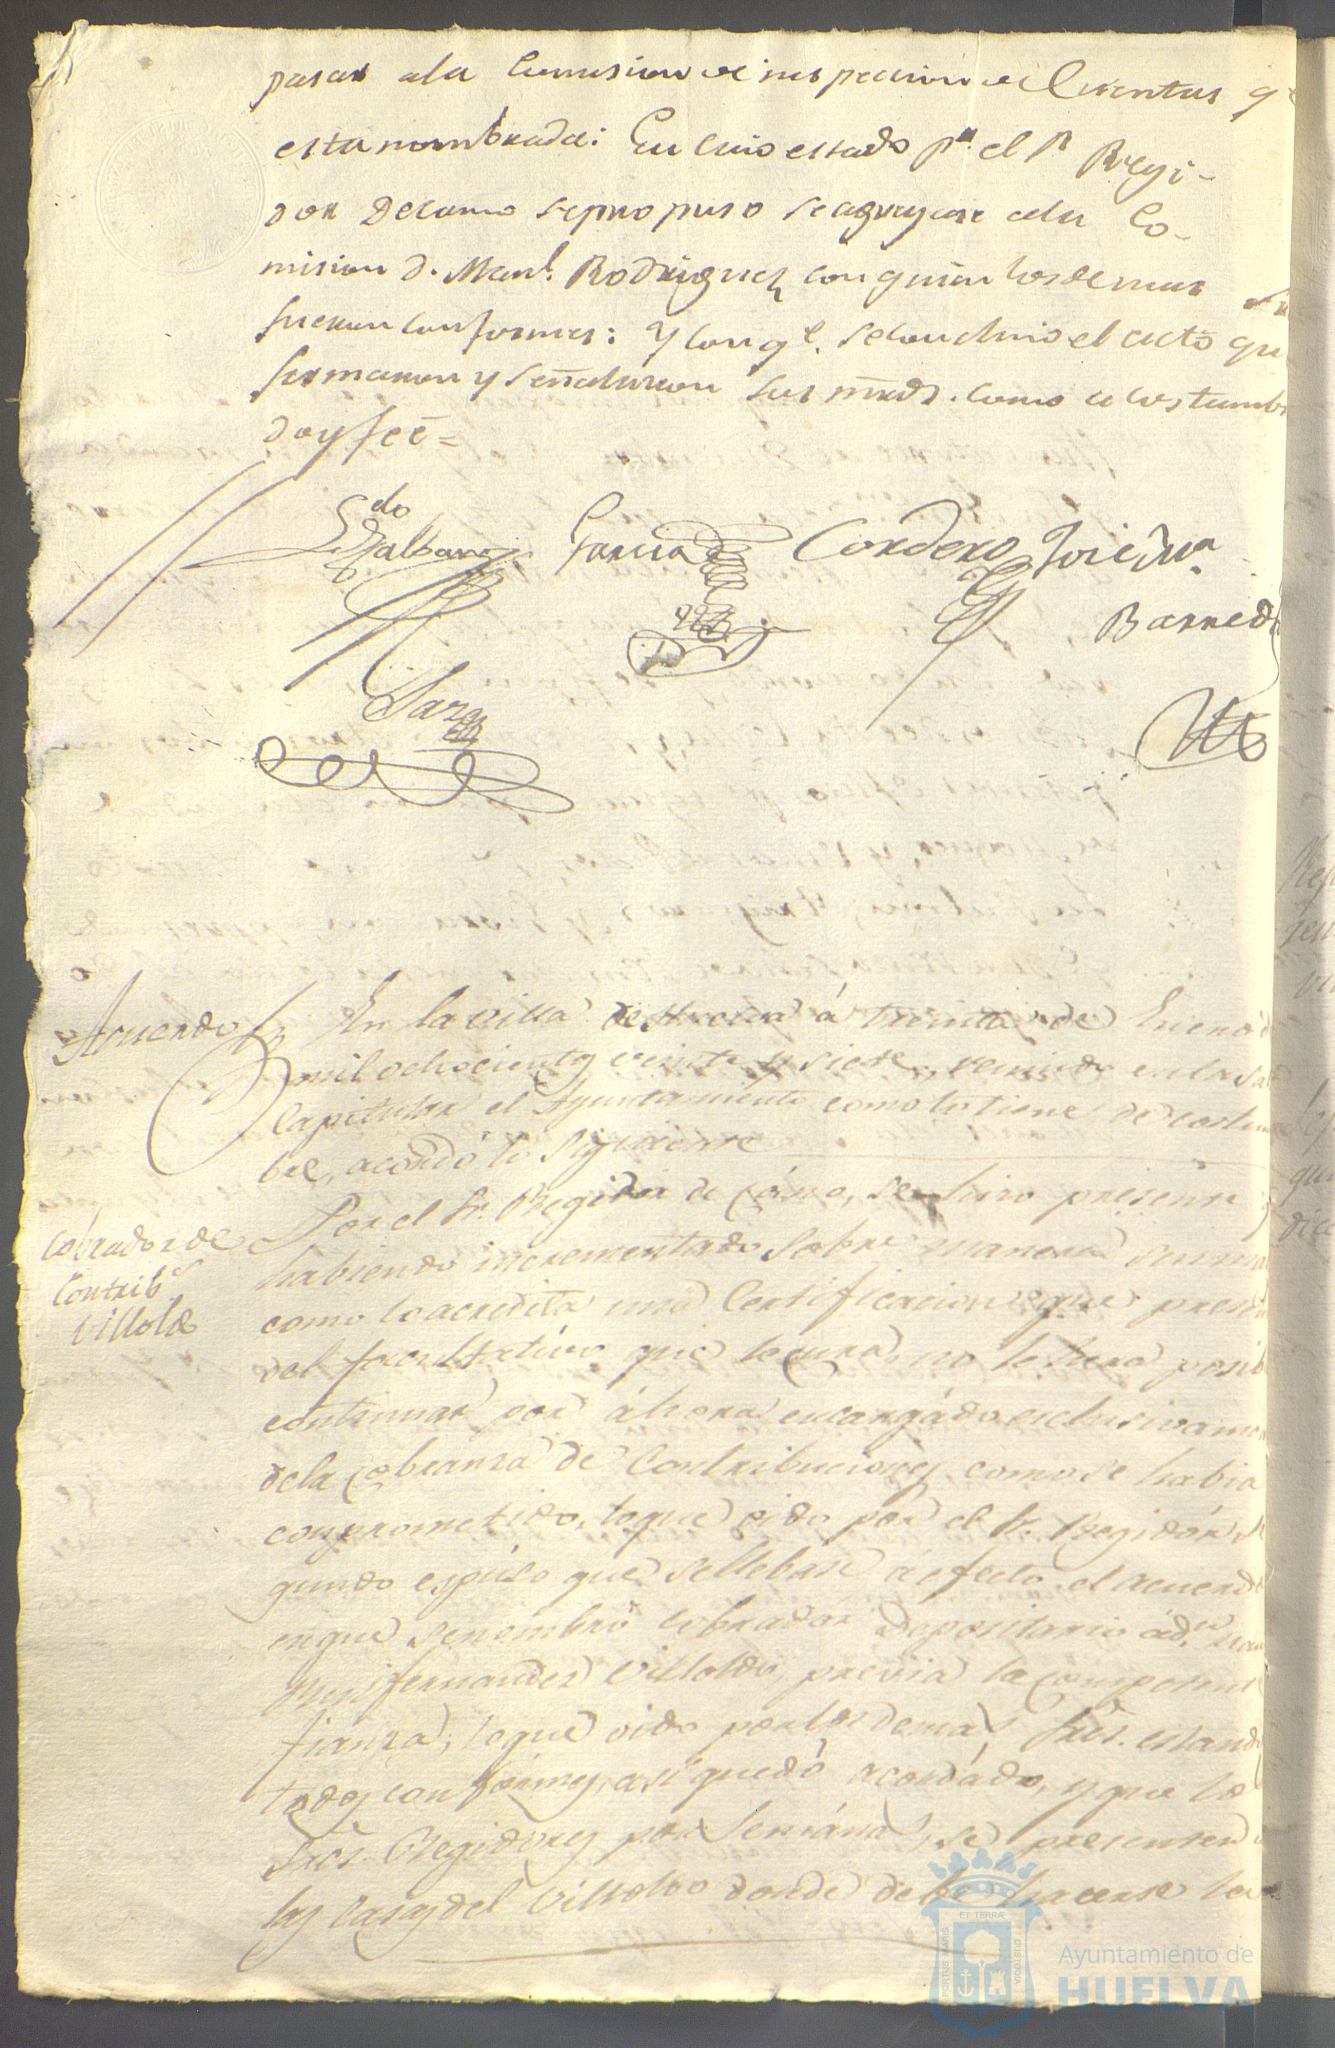 pasar ala Comision de inspeccion de Cuentas qe
esta nombrada: En cuio estado pr. el Sr Regi-
dor Decano sepropuso seagregase ala Co-
mision D. Manl. Rodriguez con quien los demas
fueron conformes: Y con qe. seconcluio el acto qu
firmaron y señalaron sus mrds. como acostumb
doy feé =
Ldo
Galban
Garcia
Cordero
José Ma.
Barreda
Saza
Acuerdo
En la villa de Huelva á treinta de Enero d
mil ochocientos veinte y siete, reunido en la Sa
Capitular el Ayuntamiento como lo tiene de costum
bre, acordó lo siguiente
Cobrador de
Contribs
Villoldo
Por el Sr. Regidor de cano, se hizo presente q
habiendo incrementado sobre manera su
como lo acredita una Certificacion que presen
del facultativo que le cura, no le hera posib
continuar por áhora encargádo esclusivamen
dela Cobranza de Contribuciones como se habia
comprometido, loque oido por el Sr. Regidór se
gundo espúso que sellebase á efecto el acuerdo
enque senombró cobrador Depositario ádn.
Fernandez Villoldo, previa la competente
fianza; loque oido porlos demas Sres. estando
todos conformes, asi quedó acordádo, y que lo
Sres. Regidores por Semána, se presenten
las Casas del Villoldo donde debe hacerse la
PORTUS MARIS
ET TERRÆ
CUSTODIA
Ayuntamiento de
HUELVA